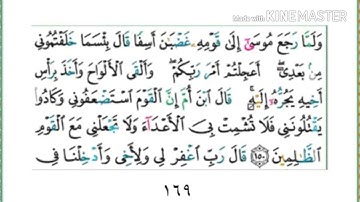 Made with KINEMASTER
وَلَمَّا رَجَعَ مُوسَىٰٓ إِلَىٰ قَوْمِهِۦ غَضْبَٰنَ أَسِفًا قَالَ بِئْسَمَا خَلَفْتُمُونِى
مِنۢ بَعْدِىٓ ۖ أَعَجِلْتُمْ أَمْرَ رَبِّكُمْ ۖ وَأَلْقَى ٱلْأَلْوَاحَ وَأَخَذَ بِرَأْسِ
أَخِيهِ يَجُرُّهُۥٓ إِلَيْهِ ۚ قَالَ ٱبْنَ أُمَّ إِنَّ ٱلْقَوْمَ ٱسْتَضْعَفُونِى وَكَادُوا۟
يَقْتُلُونَنِى فَلَا تُشْمِتْ بِىَ ٱلْأَعْدَآءَ وَلَا تَجْعَلْنِى مَعَ ٱلْقَوْمِ
ٱلظَّٰلِمِينَ ١٥٠ قَالَ رَبِّ ٱغْفِرْ لِى وَلِأَخِى وَأَدْخِلْنَا فِى
١٦٩